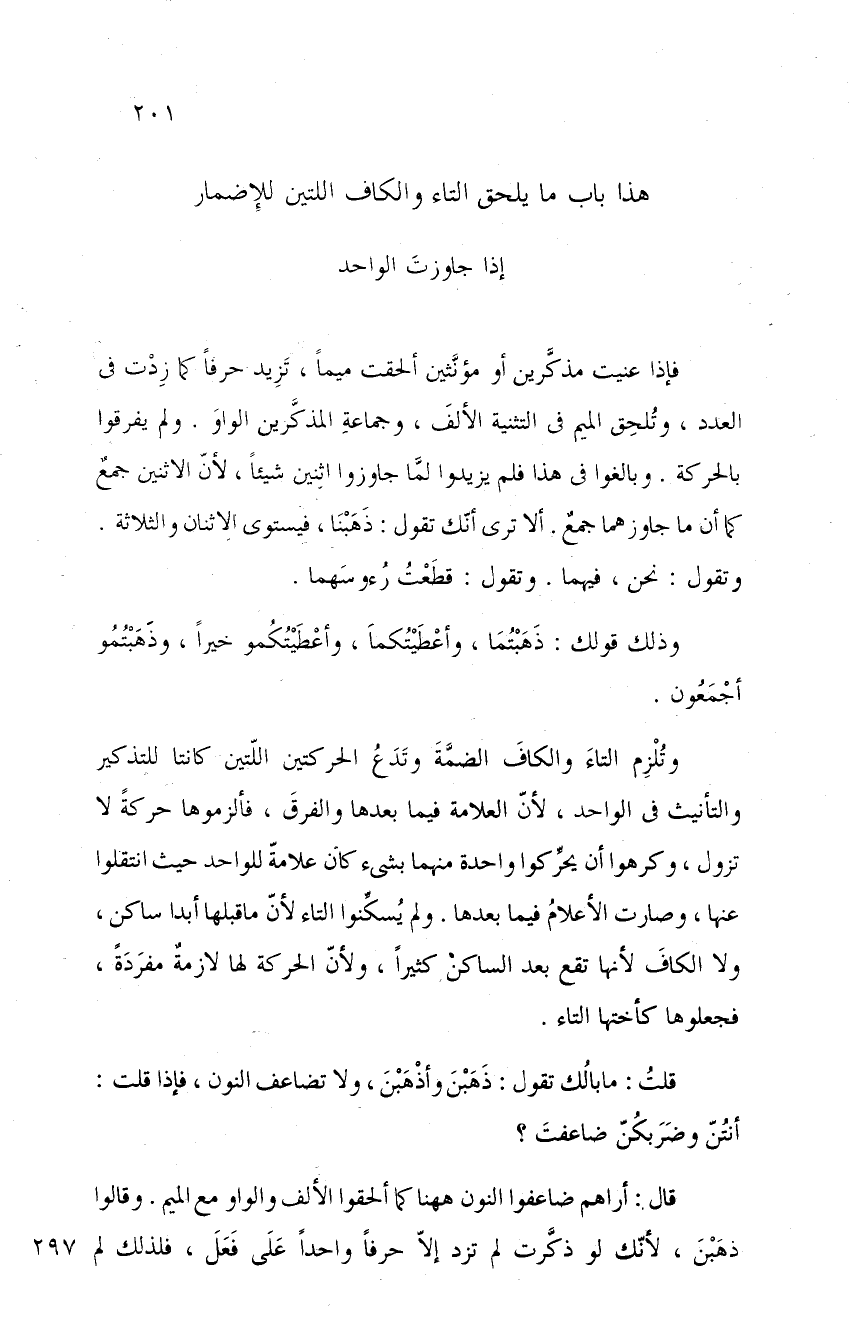 ٢٠١
هذا باب ما يلحق التاء والكاف اللتين للإِضمار
إذا جاوزتَ الواحد
فإذا عنيت مذكَّرين أو مؤنَّثين ألحقت ميماً ، تَزِيد حرفاً كما زِدْت فى
العدد ، وتُلحِق الميم فى التثنية الألفَ ، وجماعةِ المذكَّرين الواوَ . ولم يفرقوا
بالحركة . وبالغوا فى هذا فلم يزيدوا لمَّا جاوزوا اثنِين شيئاً ، لأنّ الاثنين جمعٌ
كما أن ما جاوزهما جمعٌ . ألا ترى أنّك تقول : ذَهَبْنَا ، فيستوى الاثنان والثلاثة .
وتقول : نحن ، فيهما . وتقول : قطَعْتُ رُءوسَهما .
وذلك قولك : ذَهَبْتُمَا ، وأعْطَيْتُكماَ ، وأعْطَيْتُكُمو خيراً ، وذَهَبْتُمُو
أجْمَعُون .
وتُلْزِم التاءَ والكافَ الضمَّةَ وتَدَعُ الحركتين اللّتين كانتا للتذكير
والتأنيث فى الواحد ، لأنّ العلامة فيما بعدها والفرقَ ، فألزموها حركةً لا
تزول ، وكرهوا أن يحرِّكوا واحدة منهما بشىء كان علامةً للواحد حيث انتقلوا
عنها ، وصارت الأعلامُ فيما بعدها . ولم يُسكِّنوا التاء لأنّ ماقبلها أبدا ساكن ،
ولا الكافَ لأنها تقع بعد الساكنْ كثيراً ، ولأنّ الحركة لها لازمةٌ مفرَدَةً ،
فجعلوها كأختها التاء .
قلتُ : مابالُك تقول : ذَهَبْنَ وأذْهَبْنَ ، ولا تضاعف النون ، فإذا قلت :
أنتُنّ وضَرَبكُنّ ضاعفتَ ؟
قال : أراهم ضاعفوا النون ههنا كما ألحقوا الألف والواو مع الميم . وقالوا
ذهَبْنَ ، لأنّك لو ذكَّرت لم تزد إلاّ حرفاً واحداً عَلَى فَعَلَ ، فلذلك لم ٢٩٧